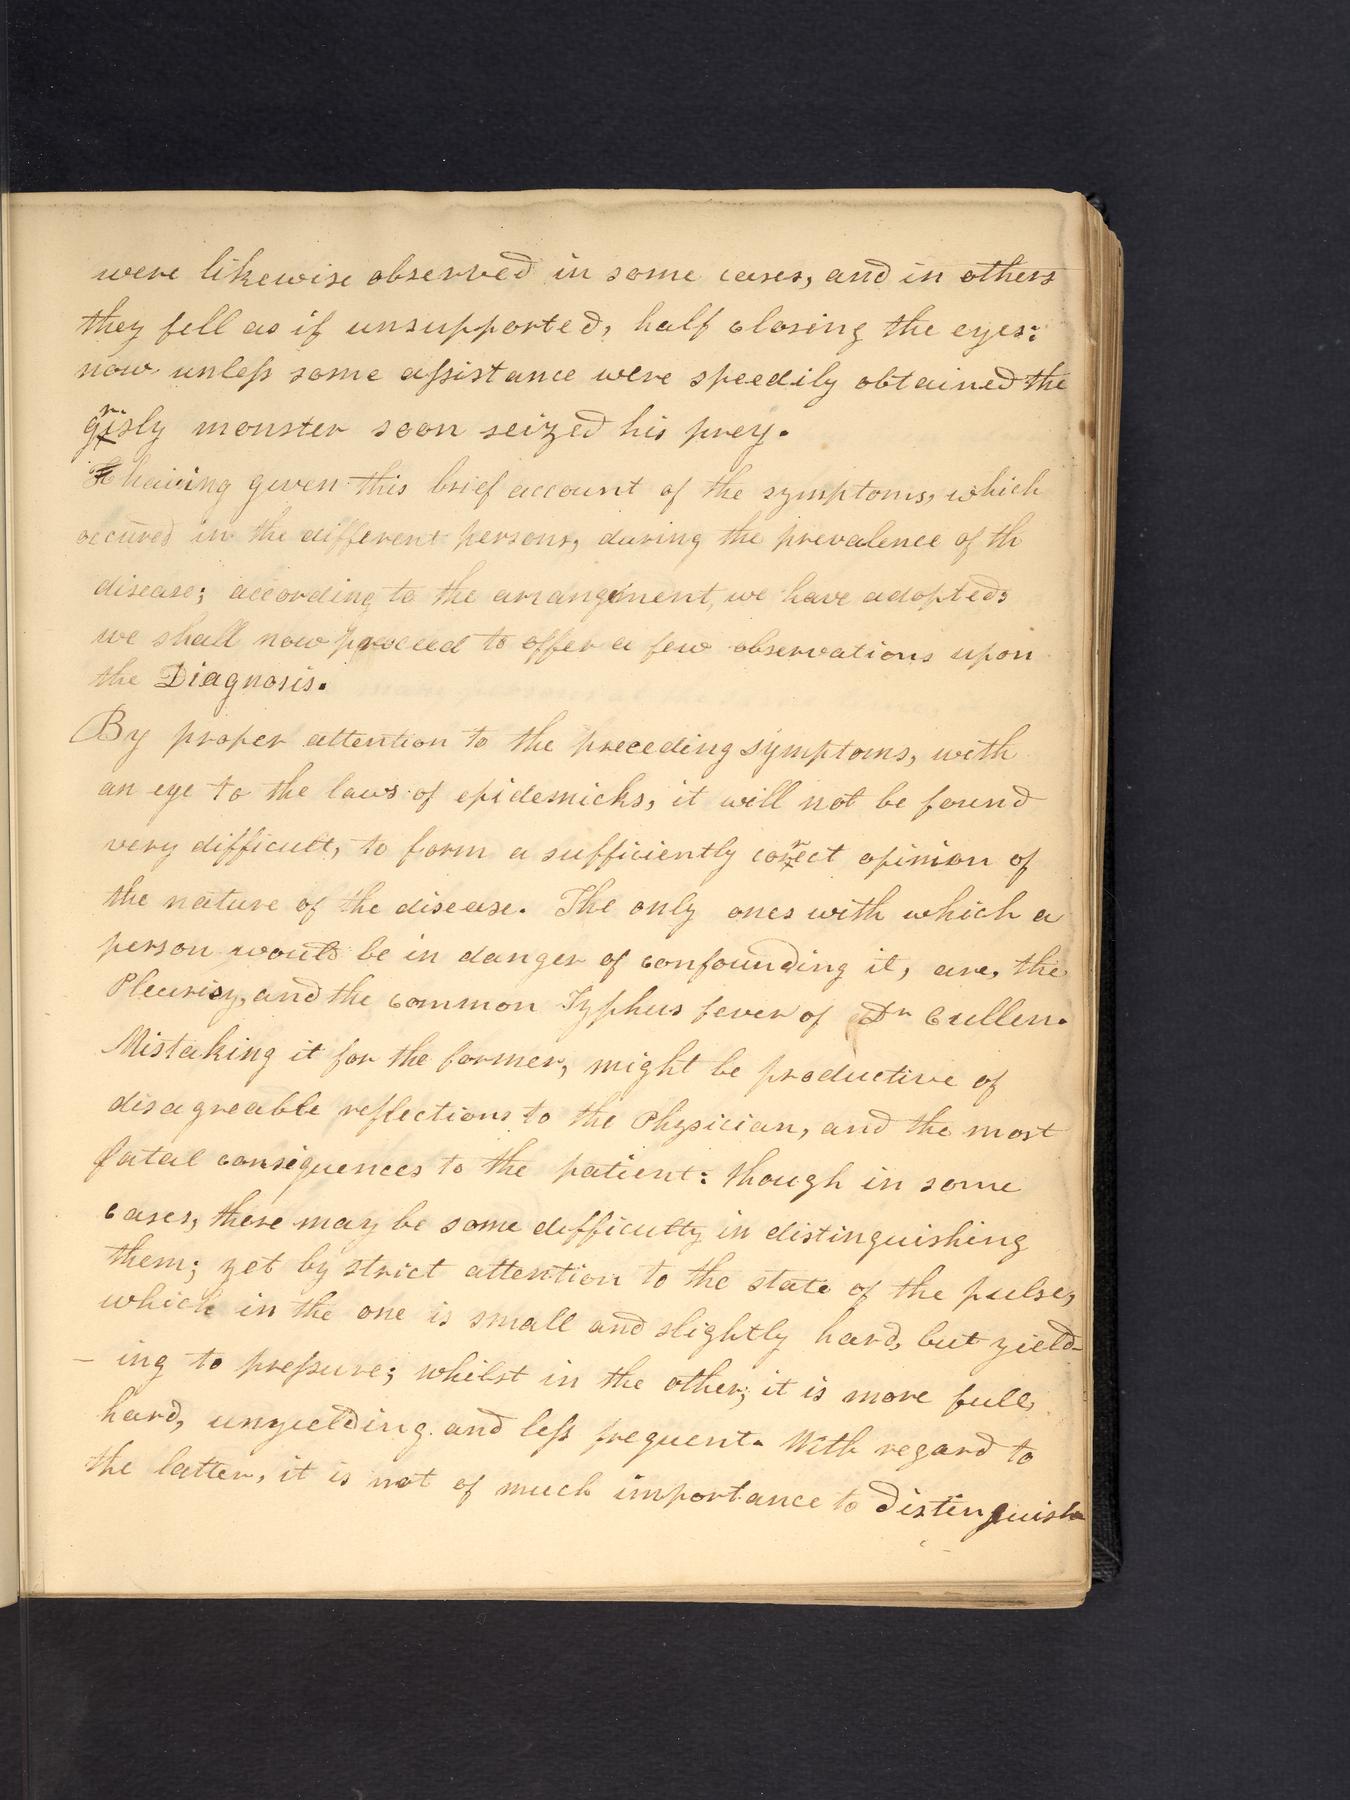 were likewise observed in some cases, and in others
they fell as if unsupported, half closing the eyes:
now unless some assistance were speedily obtained the
grisly monster soon seized his prey.
having given this brief account of the symptoms, which
occured in the different persons, during the prevalence of th
disease; according to the arrangement, we have adopted;
we shall now proceed to offer a few observations upon
the Diagnosis.
By proper attention to the preceding symptoms, with
an eye to the laws of epidemicks, it will not be found
very difficult, to form a sufficiently correct opinion of
the nature of the disease. The only ones with which a
person would be in danger of confounding it, are, the
Pleurisy, and the common Typhus fever of Dr Cullen.
Mistaking it for the former, might be productive of
disagreable reflections to the Physician, and the most
fatal consequences to the patient: though in some
cases, there may be some difficulty in distinguishing
them; yet by strict attention to the state of the pulse,
which in the one is small and slightly hard, but yield-
- ing to pressure; whilst in the other, it is more full,
hard, unyielding and less frequent. With regard to
the latter, it is not of much importance to distinguish